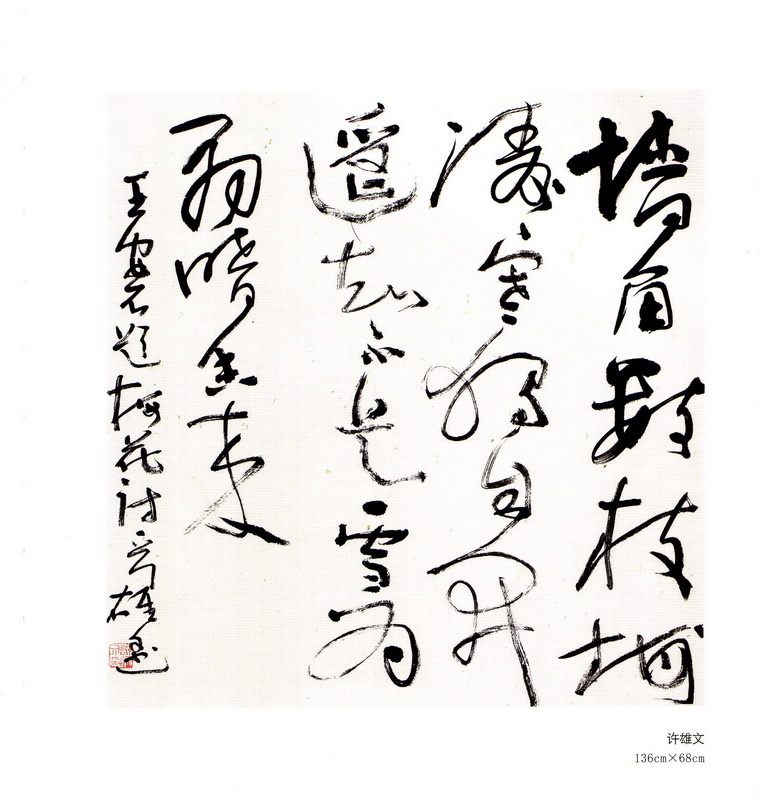 墙角数枝梅
凌寒独自开
遥知不是雪为
有暗香来
王安石题梅花诗许雄书
许雄文
136cm×68cm